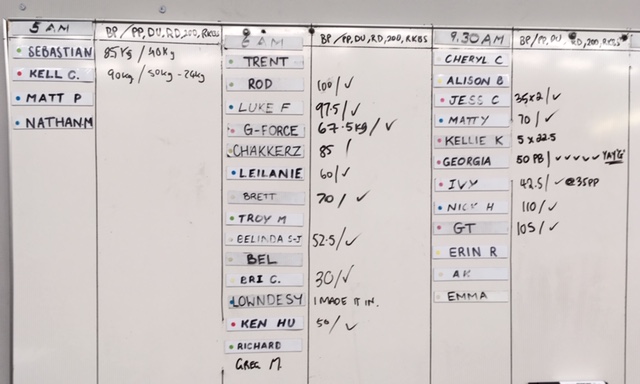 5 AM BP/PP, DU, RD, 200, RKBS
SEBASTIAN 85kg / 40kg
KELL C. 90kg / 50kg - 24kg
MATT P
NATHAN M
6 AM BP/PP, DU, RD, 200, RKBS
TRENT
ROD 100/✓
LUKE F 97.5/✓
G-FORCE 67.5kg/✓
CHAKKERZ 85 /
LEILANIE 60/✓
BRETT 70/✓
TROY M
BELINDA S-J 52.5/✓
BEL
BRI C. 30/✓
LOWNDESY I MADE IT IN.
KEN HU 50/✓
RICHARD
GREG M.
9.30 AM BP/PP, DU, RD, 200, RKBS
CHERYL C
ALISON B
JESS C 35x2/✓
MATTY 70/✓
KELLIE K 5 x 22.5
GEORGIA 50 PB/✓✓✓✓✓ YAY "G"
IVY 42.5/✓ @35PP
NICK H 110/✓
GT 105/✓
ERIN R
AK
EMMA